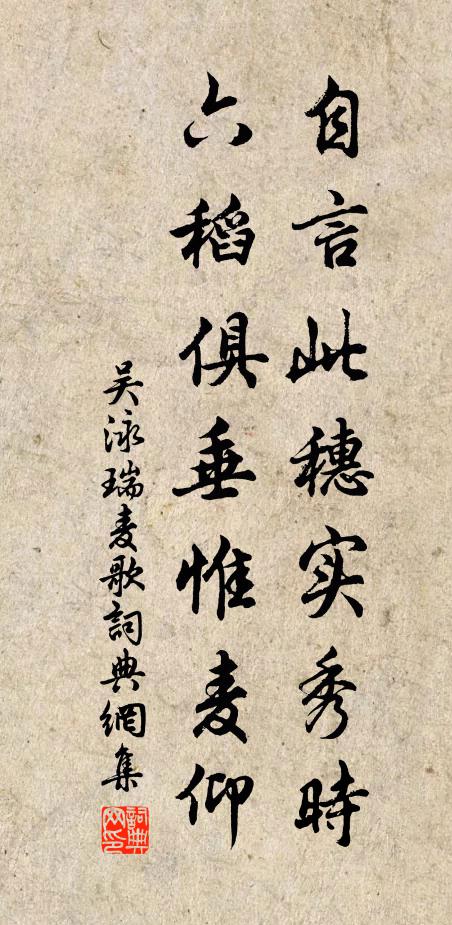 自言此穗实秀時
六稻俱垂惟麦仰
吴泳瑞麦歌詞典網集
詞典网印